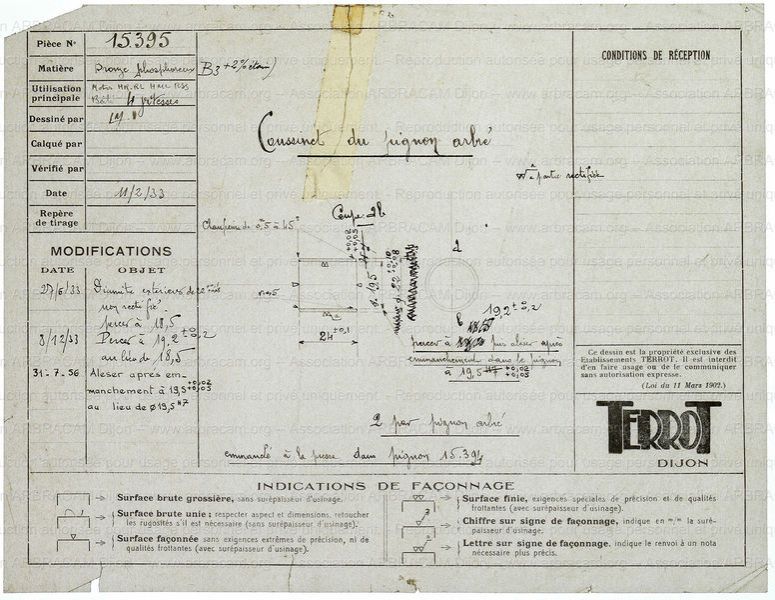 Pièce N° 15.395
Matière Bronze phosphoreux B3 + 2% étain)
Utilisation
principale
4 vitesses
Dessiné par
Calqué par
Vérifié par
Date 11/2/33
Repère
de tirage
MODIFICATIONS
DATE OBJET
27/6/33 Diamètre extérieur de
non rectifié.
percer à 18,5
8/12/33 Percer à 19,2 ± 0,2
au lieu de 18,5
31-7-56 Aléser après em-
manchement à 19,5 +0,02 +0,05
au lieu de ø19,5 H7
Coussinet du pignon arbré
à partie rectifiée
Coupe ab
Chanfrein de 0,5 à 45°
24 ±0,1
ø 19,5
19,2 ± 0,2
percer à puis aléser après
emmanchement dans le pignon
à 19,5 H7 +0,02 +0,05
2 par pignon arbré
emmanché à la presse dans pignon 15.394
CONDITIONS DE RÉCEPTION
Ce dessin est la propriété exclusive des
Etablissements TERROT. Il est interdit
d'en faire usage ou de le communiquer
sans autorisation expresse.
(Loi du 11 Mars 1902.)
TERROT
DIJON
INDICATIONS DE FAÇONNAGE
Surface brute grossière, sans surépaisseur d'usinage.
Surface brute unie : respecter aspect et dimensions, retoucher
les rugosités s'il est nécessaire (sans surépaisseur d'usinage).
Surface façonnée sans exigences extrêmes de précision, ni de
qualités frottantes (avec surépaisseur d'usinage).
Surface finie, exigences spéciales de précision et de qualités
frottantes (avec surépaisseur d'usinage).
3
Chiffre sur signe de façonnage, indique en m/m la suré-
paisseur d'usinage.
Lettre sur signe de façonnage, indique le renvoi à un nota
nécessaire plus précis.
www.arbracam.org – Association ARBRACAM Dijon – Reproduction autorisée pour usage personnel et privé uniquement.